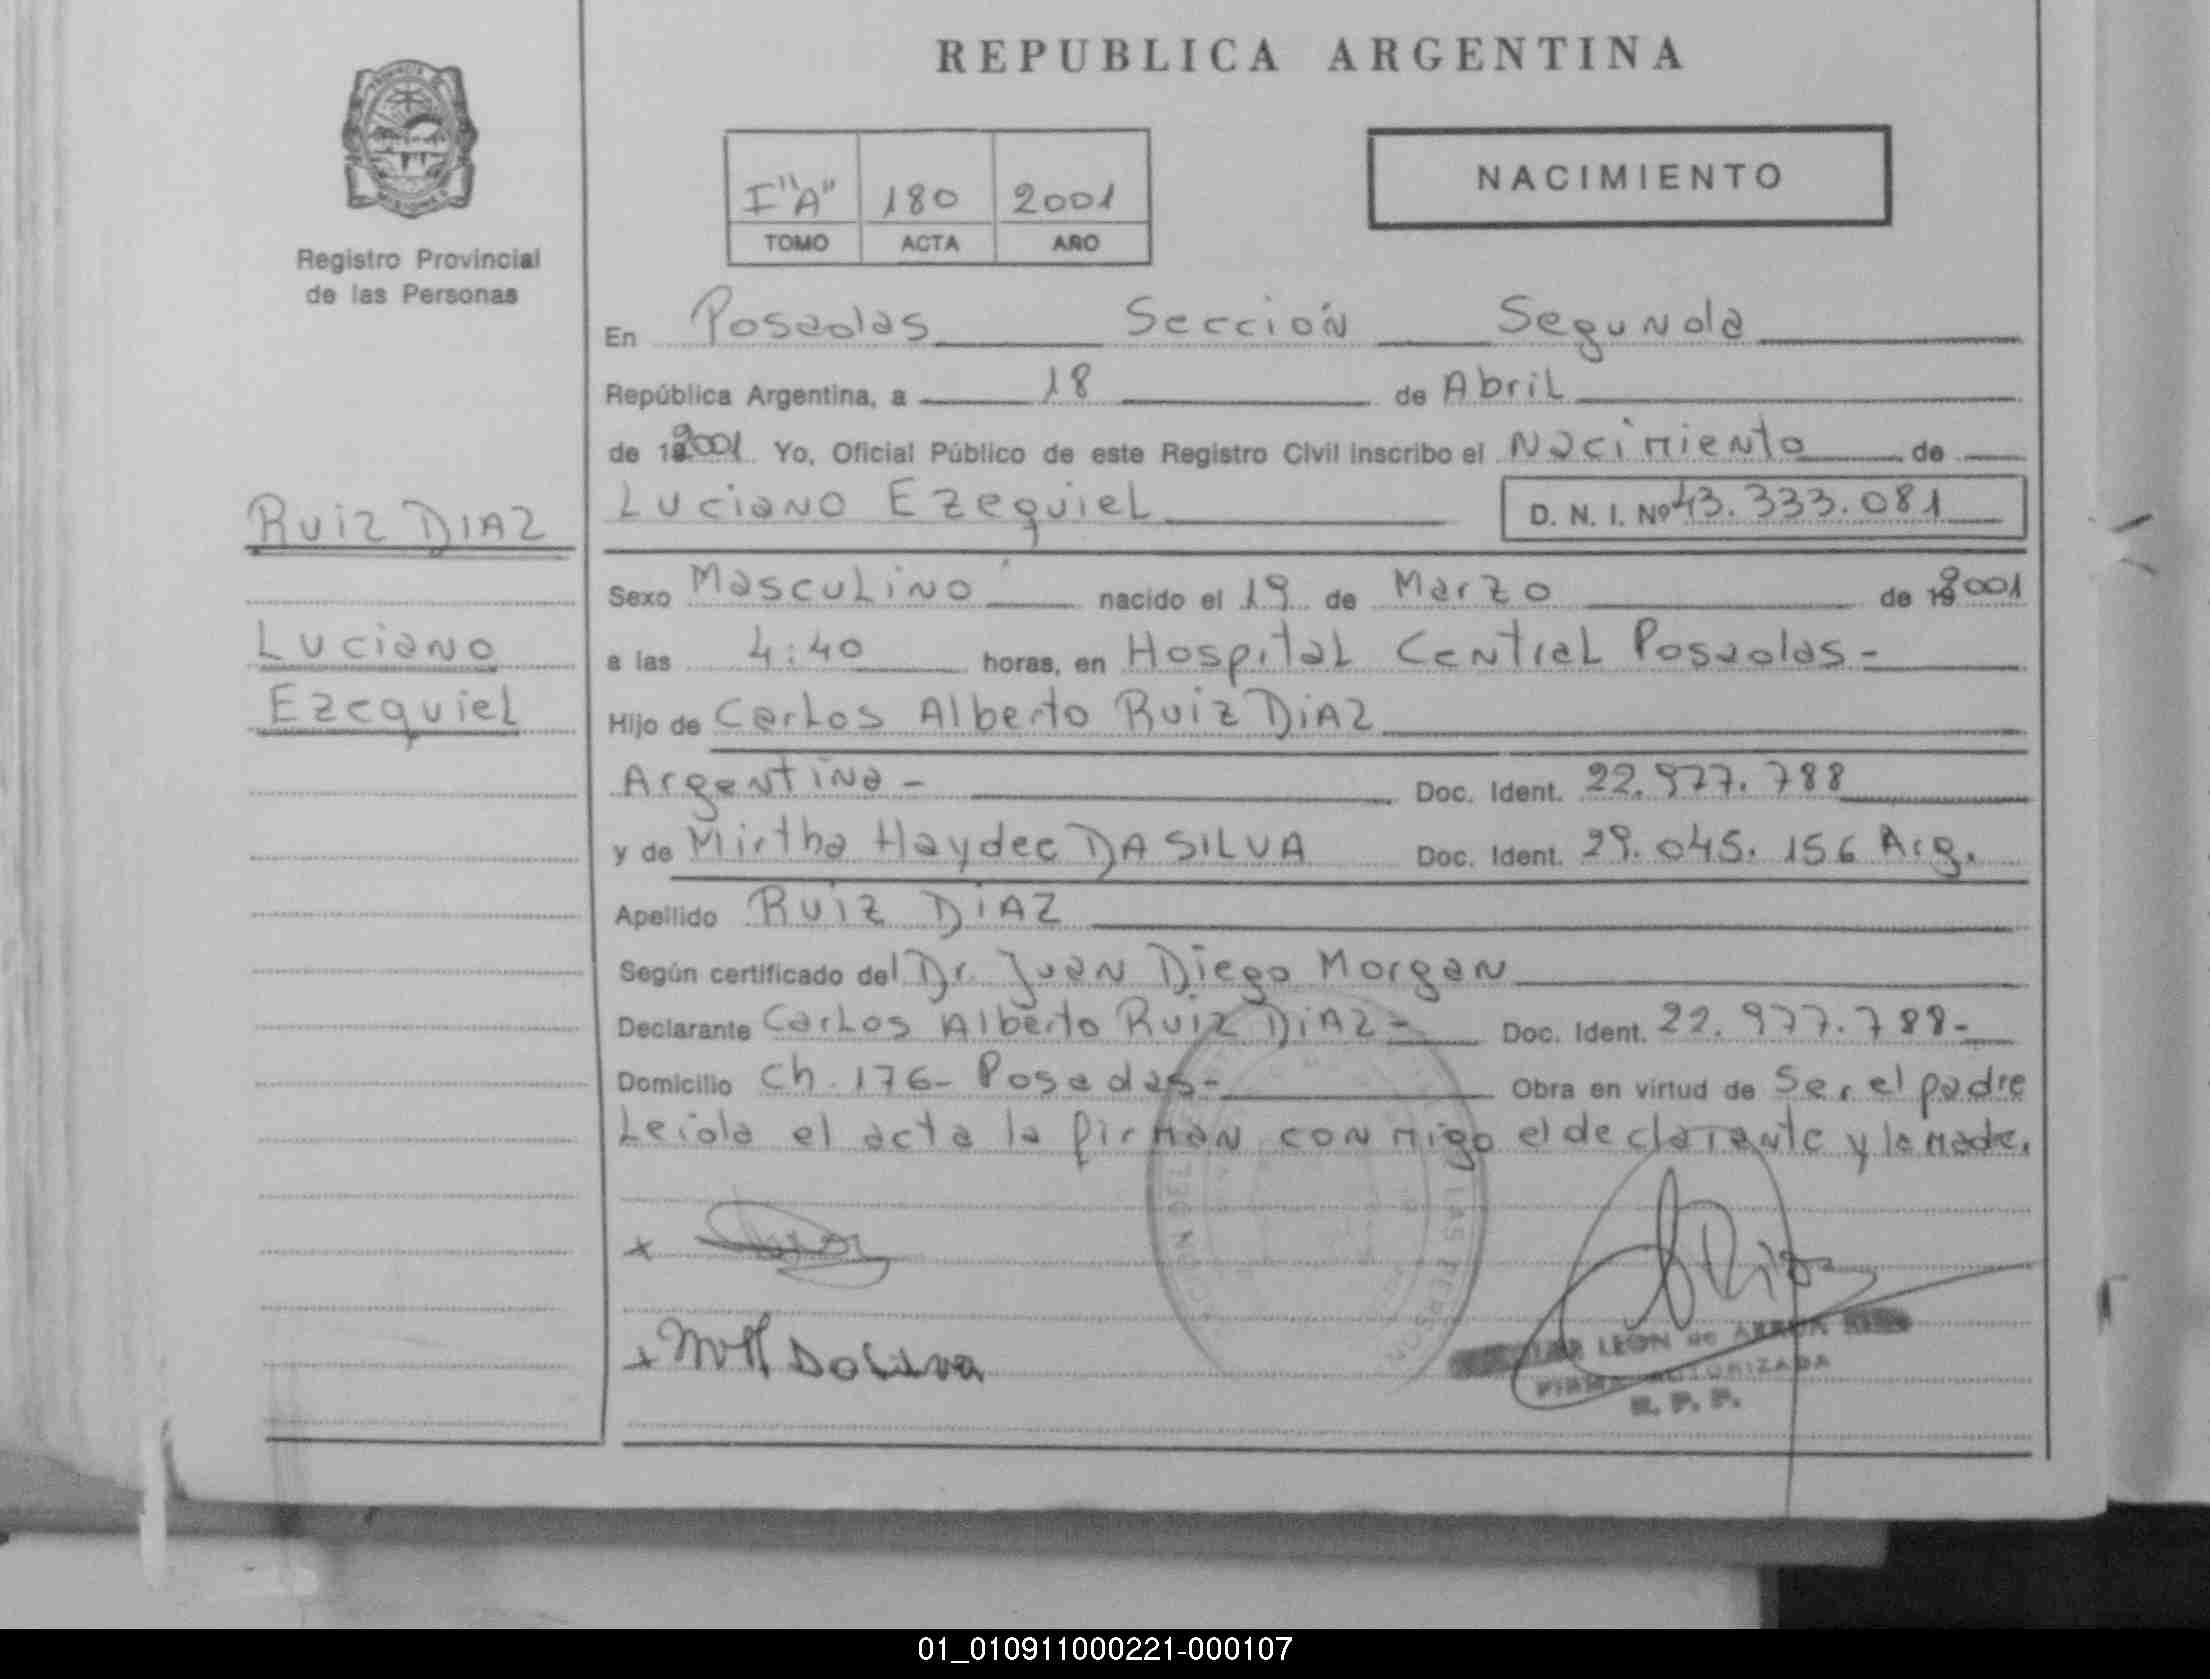 REPUBLICA ARGENTINA
NACIMIENTO
I "A" 180 2001
TOMO ACTA AÑO
Registro Provincial
de las Personas
En Posadas Sección Segunda
República Argentina, a 18 de Abril
de 2001 Yo, Oficial Público de este Registro Civil inscribo el Nacimiento de
RUIZ DIAZ
Luciano Ezequiel D. N. I. Nº 43.333.081
Sexo Masculino nacido el 19 de Marzo de 2001
Luciano
a las 4:40 horas, en Hospital Central Posadas-
Ezequiel
Hijo de Carlos Alberto Ruiz DIAZ
Argentina - Doc. Ident. 22.977.788
y de Mirtha Haydee DA SILVA Doc. Ident. 29.045.156 Arg.
Apellido RUIZ DIAZ
Según certificado del Dr. Juan Diego Morgan
Declarante Carlos Alberto Ruiz DIAZ - Doc. Ident. 22.977.788-
Domicilio Ch. 176- Posadas- Obra en virtud de Ser el padre
Leida el acta la firman conmigo el declarante y la Madre.
x
x MH DaSilva
LEON de
FIRMA AUTORIZADA
R. P. P.
01_010911000221-000107